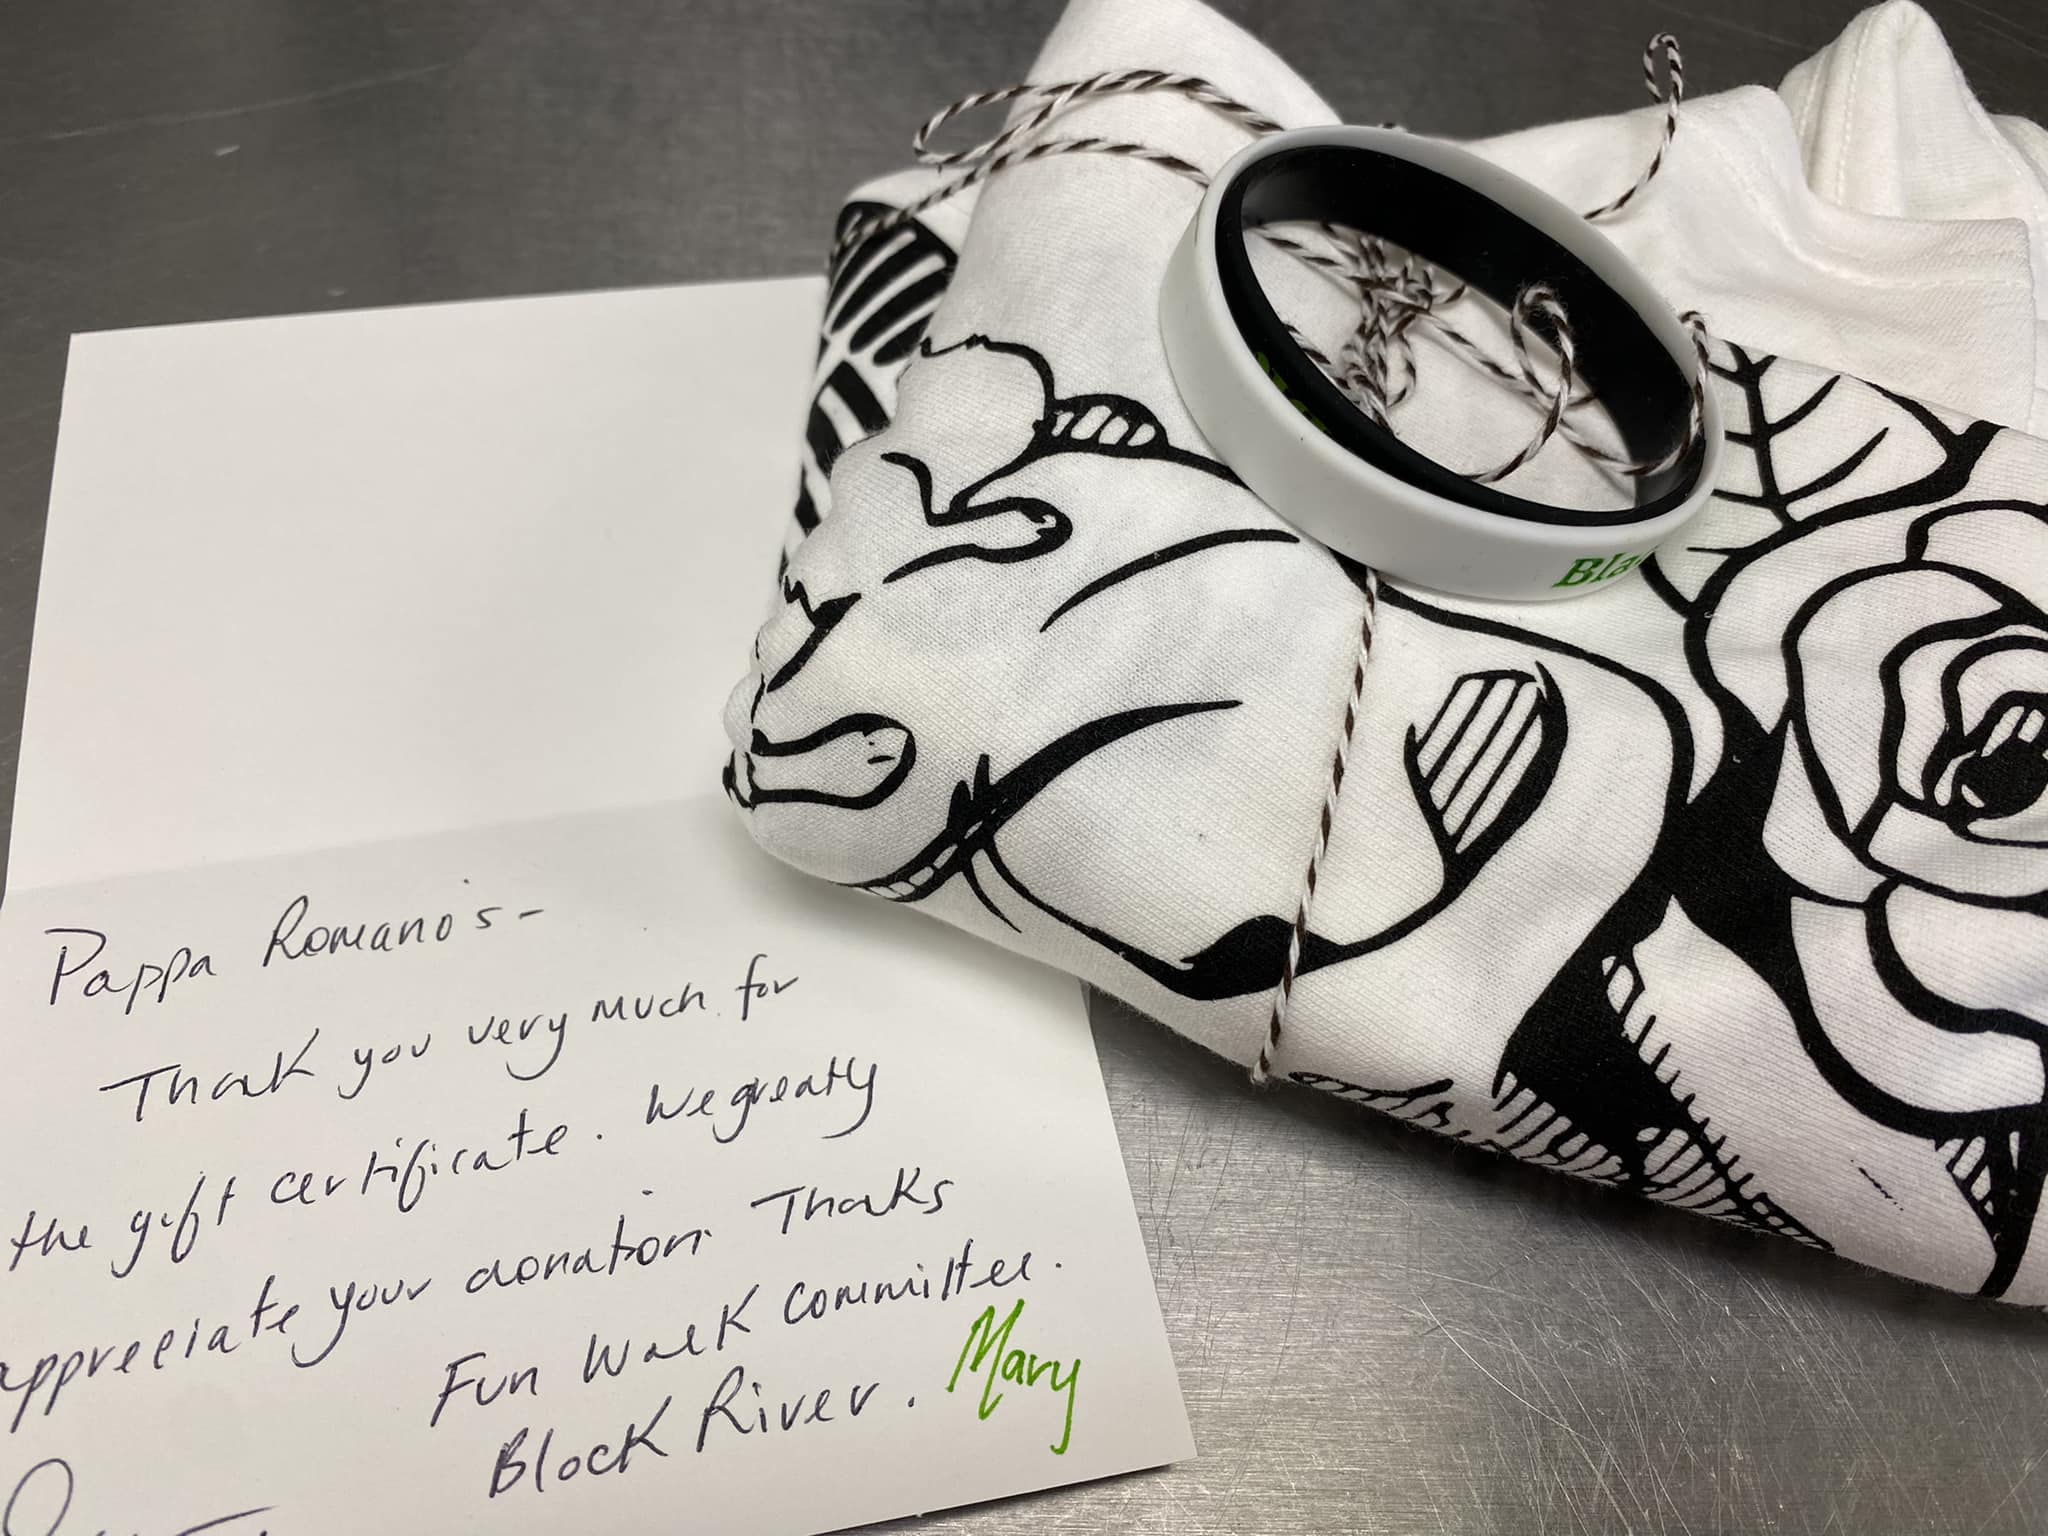 Pappa Romano's -
Thank you very much for
the gift certificate. We greatly
appreciate your donation. Thanks
Fun Walk Committee.
Block River. Mary
Bla